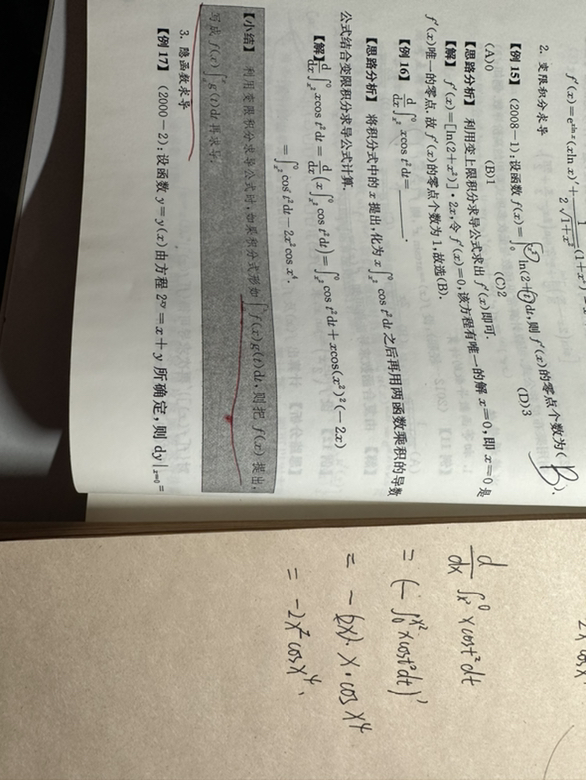 f′(x)=e^{sin x}(xln x)′+ 1/(2√(1+x²)) (1+x
2. 变限积分求导
【例 15】 (2008－1):设函数 f(x)=∫₀^{x²} ln(2+t)dt,则 f′(x)的零点个数为( B ).
(A)0 (B)1 (C)2 (D)3
【思路分析】 利用变上限积分求导公式求出 f′(x)即可.
【解】 f′(x)=[ln(2+x²)]·2x,令 f′(x)=0,该方程有唯一的解 x=0,即 x=0 是
f′(x)唯一的零点,故 f′(x)的零点个数为1,故选(B).
【例 16】 d/dx ∫_{x²}^0 xcos t²dt=______.
【思路分析】 将积分式中的 x 提出,化为 x∫_{x²}^0 cos t²dt 之后再用两函数乘积的导数
公式结合变限积分求导公式计算.
【解】 d/dx ∫_{x²}^0 xcos t²dt= d/dx (x∫_{x²}^0 cos t²dt)=∫_{x²}^0 cos t²dt+xcos(x²)²(−2x)
=∫_{x²}^0 cos t²dt−2x²cos x⁴.
【小结】 利用变限积分求导公式时,如果积分式形如∫f(x)g(t)dt,则把 f(x)提出,
写成 f(x)∫g(t)dt 再求导.
3. 隐函数求导
【例 17】 (2000－2):设函数 y=y(x)由方程 2^{xy}=x+y 所确定,则 dy|_{x=0}=
d/dx ∫_{x²}^0 xcost²dt
= (−∫₀^{x²} xcost²dt)′
= −(2x)·x·cosx⁴
= −2x²cosx⁴.